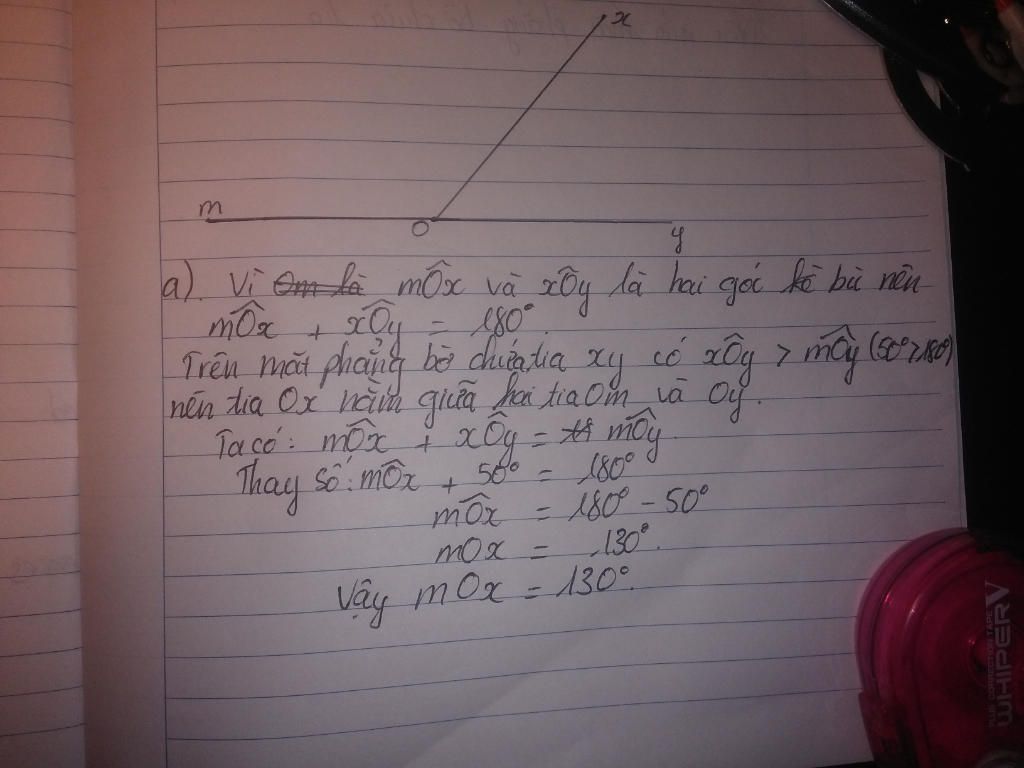 x
m
O
y
a). Vì Om là mÔx và xÔy là hai góc kề bù nên
mÔx + xÔy = 180°.
Trên mặt phẳng bờ chứa tia xy có xÔy > mÔy (50° > 180°)
nên tia Ox nằm giữa hai tia Om và Oy.
Ta có: mÔx + xÔy = mÔy
Thay số: mÔx + 50° = 180°
mÔx = 180° - 50°
mOx = 130°.
Vậy mOx = 130°.
WHIPER V